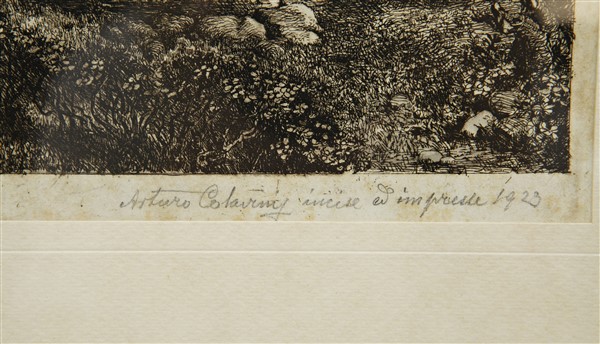 Arturo incise ed impresse 1923